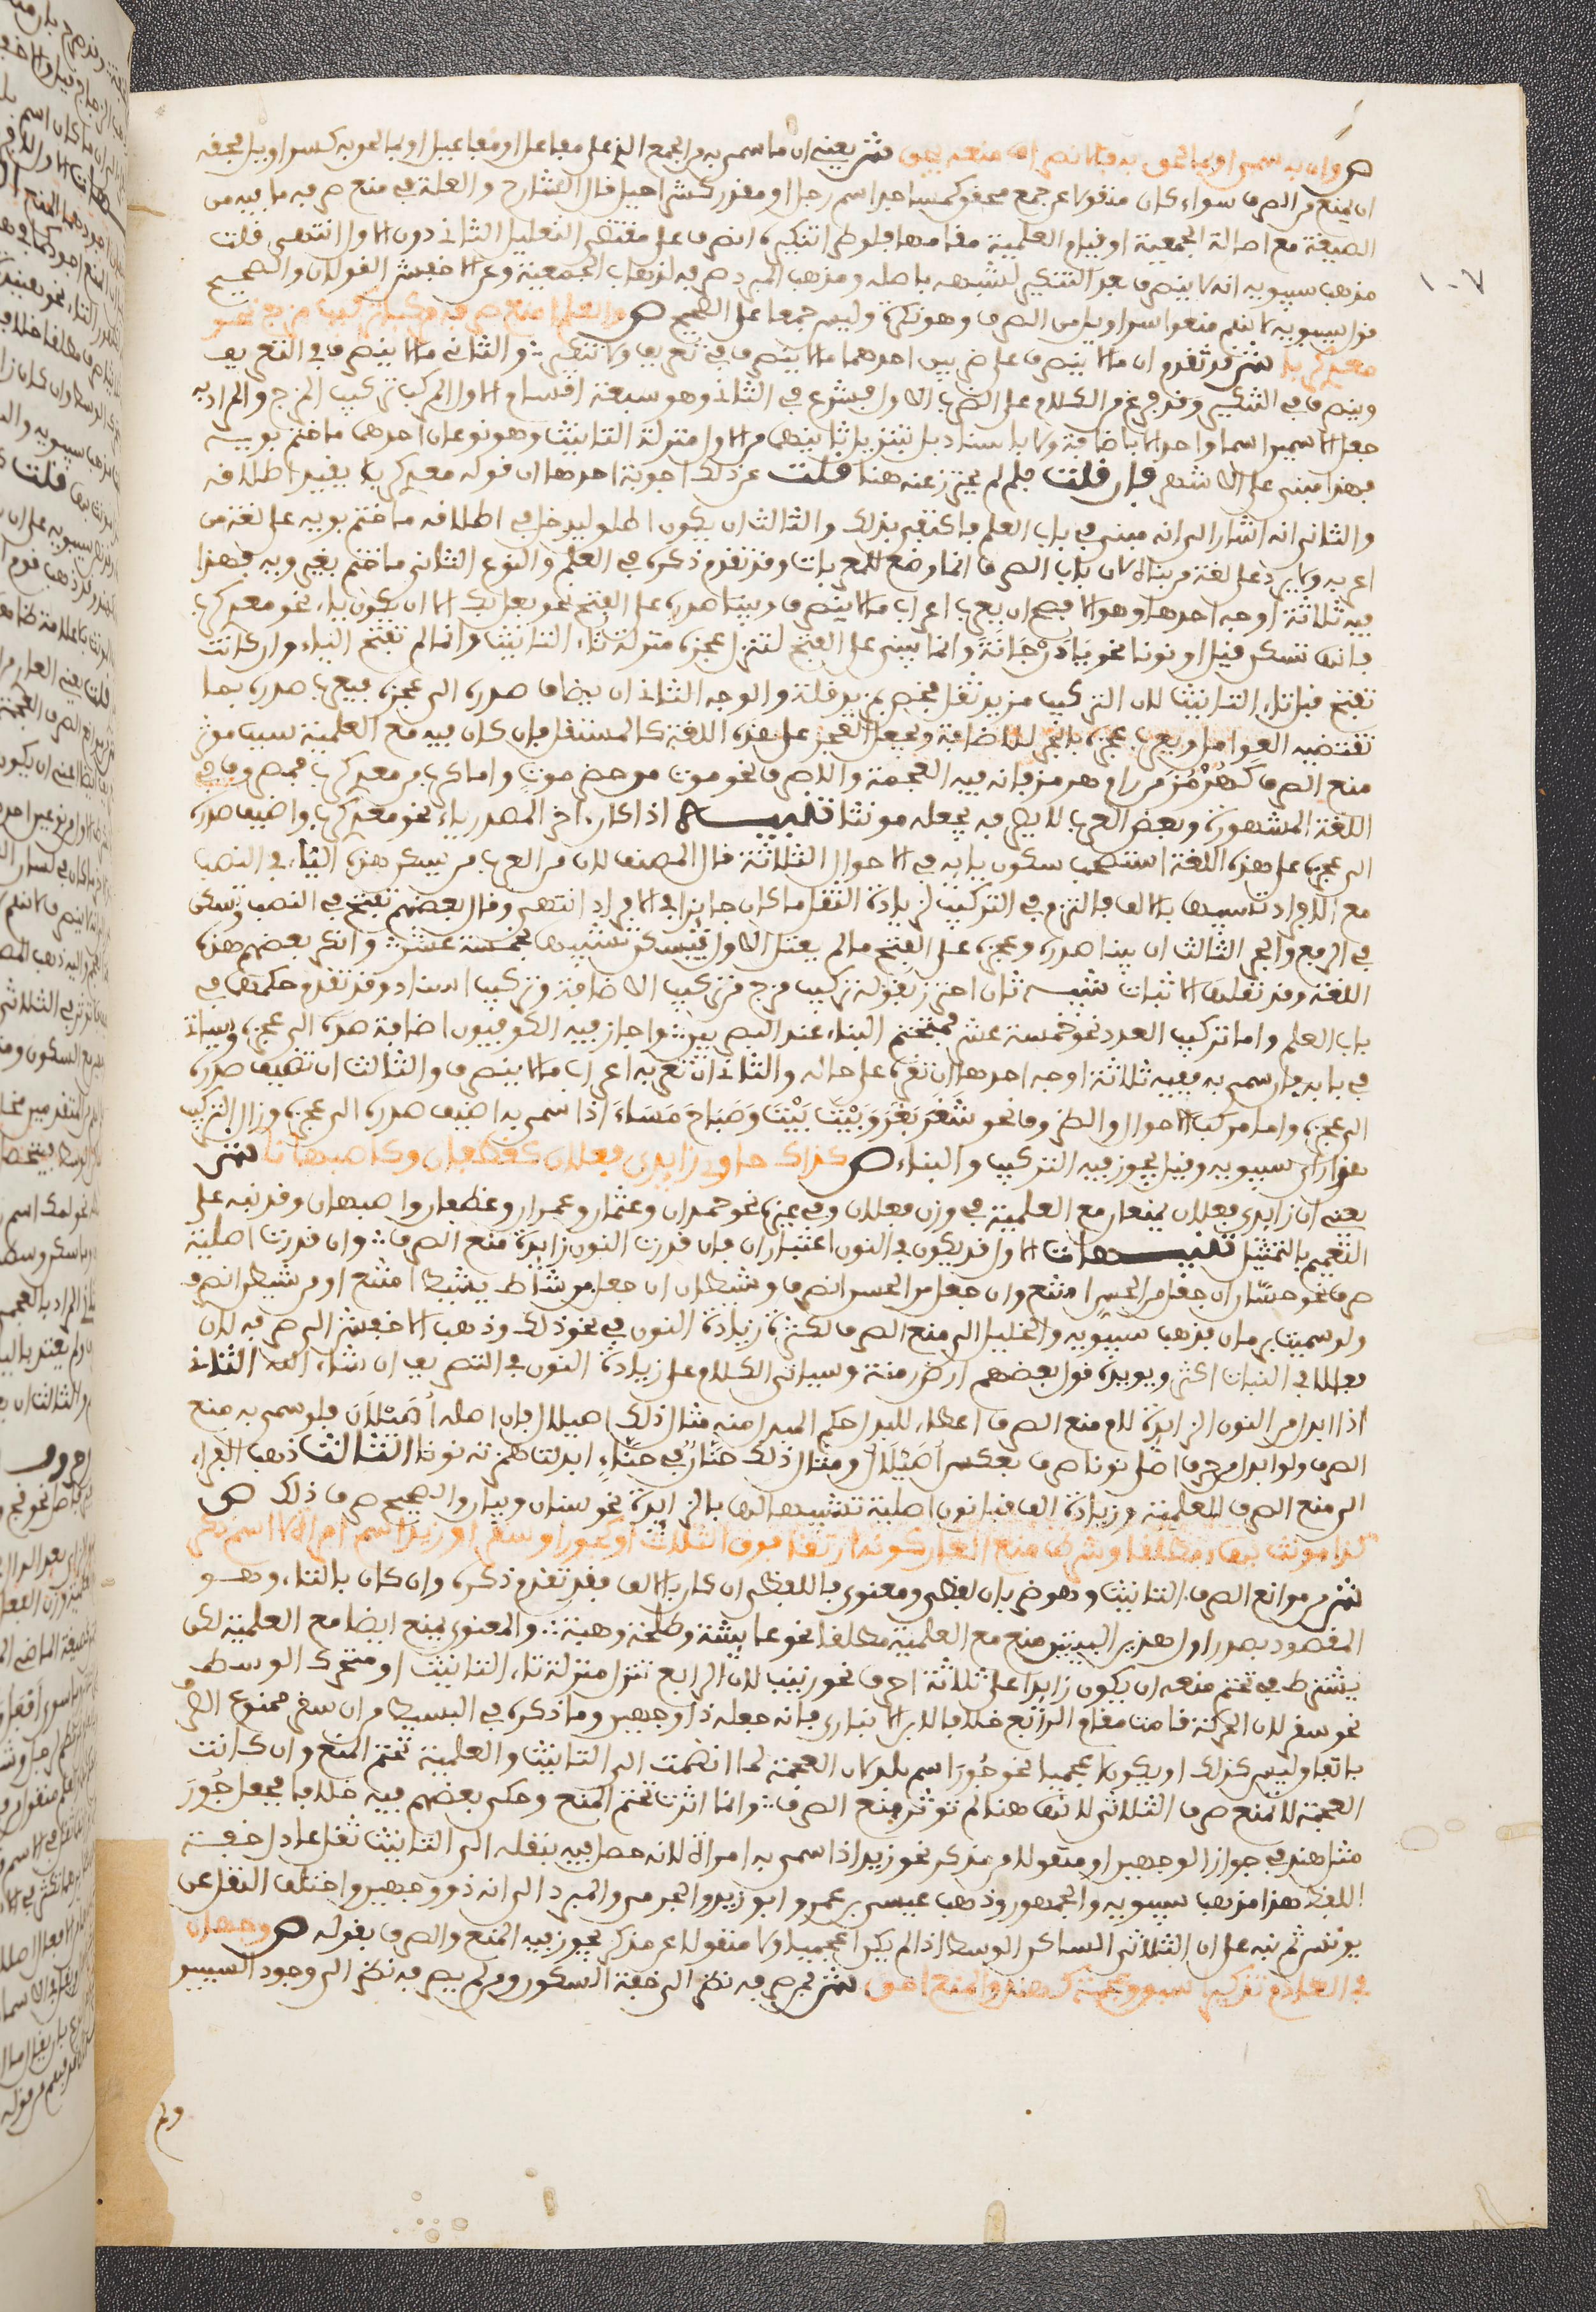 ص وان به سمي او بما لحق به فالانصراف منعه يحق ش يعني ان ما سمي به من الجمع الذي على مفاعل او مفاعيل او بما لحق به كسراويل فحقه
ان يمنع من الصرف سواء كان منقولا عن جمع محقق كمساجد اسم رجل او مقدر كشراحيل قال الشارح والعلة في منع صرفه ما فيه من
الصيغة مع اصالة الجمعية او قيام العلمية مقامها فلو طرا تنكيره انصرف على مقتضى التعليل الثاني دون الاول انتهى قلت
مذهب سيبويه انه لا ينصرف بعد التنكير لشبهه باصله ومذهب المبرد صرفه لذهاب الجمعية وعن الاخفش القولان والصحيح
قول سيبويه لانهم منعوا سراويل من الصرف وهو نكرة وليس جمعا على الصحيح ص والعلم امنع صرفه مركبا تركيب مزج نحو
معدي كربا ش قد تقدم ان ما لا ينصرف على ضربين احدهما ما لا ينصرف في تعريف ولا تنكير والثاني ما لا ينصرف في التعريف
وينصرف في التنكير وقد فرغ من الكلام على الضرب الاول فشرع في الثاني وهو سبعة اقسام الاول المركب تركيب المزج والمراد به
جعل الاسمين اسما واحدا لا باضافة ولا باسناد بل بتنزيل ثانيهما من الاول منزلة التانيث وهو نوعان احدهما ما ختم بويه
فهذا مبني على الاشهر فان قلت فلم لم يحترز عنه هنا قلت عن ذلك اجوبة احدها ان قوله معدي كربا يقيد اطلاقه
والثاني انه اشار الى انه مبني في باب العلم فاكتفى بذلك والثالث ان يكون اطلق ليدخل في اطلاقه ما ختم بويه على لغة من
اعربه ولا يرد على لغة من بناه لان باب الصرف انما وضع للمعربات وقد تقدم ذكره في العلم والنوع الثاني ما ختم بغير ويه فهذا
فيه ثلاثة اوجه احدها وهو الافصح ان يعرب اعراب ما لا ينصرف ويبنا صدره على الفتح نحو بعلبك الا ان يكون ياء نحو معدي كرب
فانها تسكن قيل او نونا نحو بَاذَنْجَانَةَ وانما بني على الفتح لتنزل عجزه منزلة تاء التانيث وانما لم تفتح الياء وان كانت
تفتح قبل تاء التانيث لان التركيب مزيد ثقل فخص بمزيد خفة والوجه الثاني ان يضاف صدره الى عجزه فيعرب صدره بما
تقتضيه العوامل ويعرب عجزه بالجر للاضافة ويجعل العجز على هذه اللغة كالمستقل فان كان فيه مع العلمية سبب موثر
منع الصرف كَهُرْمُزَ من رام هرمز فانه فيه العجمة والا صرف نحو موت من حضرموت واما كرب من معدي كرب فمصروف في
اللغة المشهورة وبعض العرب لا يصرفه يجعله مونثا تنبيه اذا كان اخر الصدر ياء نحو معدي كرب واضيف صدره
الى عجزه على هذه اللغة استصحب سكون يايه في الاحوال الثلاثة قال المصنف لان من العرب من يسكن هذه الياء في النصب
مع الافراد تشبيها بالالف فالتزم في التركيب لزيادة الثقل ما كان جايزا في الافراد انتهى وقال بعضهم تفتح في النصب وتسكن
في الرفع والجر الثالث ان يبنا صدره وعجزه على الفتح ما لم يعتل الاول فيسكن تشبيها بخمسة عشر وانكر بعضهم هذه
اللغة وقد نقلها الاثبات تنبيه ثان احترز بقوله تركيب مزج من تركيب الاضافة وتركيب الاسناد وقد تقدم حكمهما في
باب العلم واما تركيب العدد نحو خمسة عشر فمتحتم البناء عند البصريين واجاز فيه الكوفيون اضافة صدره الى عجزه وسياتي
في بابه فان سمي به ففيه ثلاثة اوجه احدها ان تقره على حاله والثاني ان تعربه اعراب ما لا ينصرف والثالث ان تضيف صدره
الى عجزه واما مركب الاحوال والظروف نحو شَغَرَ بَغَرَ وَبَيْتَ بَيْتَ وَصَبَاحَ مَسَاءَ اذا سمي به اضيف صدره الى عجزه وزال التركيب
هذا راي سيبويه وقيل يجوز فيه التركيب والبناء ص كذاك حاوي زايدي فعلان كغطفان وكاصبهانا ش
يعني ان زايدي فعلان يمنعان مع العلمية في وزن فعلان وفي غيره نحو حمدان وعثمان وعمران وغطفان واصبهان وقد نبه على
التعميم بالتمثيل تنبيهات الاول قد يكون في النون اعتباران فان قدرت النون زايدة منع الصرف وان قدرت اصلية
صرف نحو حسّان ان جعل من الحس امتنع وان جعل من الحسن انصرف وشيطان ان جعل من شاط يشيط امتنع او من شيطن انصرف
ولو سميت برمان فذهب سيبويه والخليل الى منع الصرف لكثرة زيادة النون في نحو ذلك وذهب الاخفش الى صرفه لان
فعالا في النبات اكثر ويويده قول بعضهم ارض رمنة وسياتي الكلام على زيادة النون في التصريف ان شاء الله الثاني
اذا ابدل من النون الزايدة لام منع الصرف اعطاء للبدل حكم المبدل منه مثال ذلك اصيلال فان اصله اُصَيْلانَ فلو سمي به منع
الصرف ولو ابدل من حرف اصلي نونا صرف بعكس اُصَيْلَالٍ ومثال ذلك حِنَّانٌ في حِنَّاءٍ ابدلت همزته نونا الثالث ذهب الفراء
الى منع الصرف للعلمية وزيادة الف قبل نون اصلية تشبيها لها بالزايدة نحو سنان وبيان والصحيح صرف ذلك ص
كذا مونث بهاء مطلقا وشرط منع العار كونه ارتقى فوق الثلاث او كجور او سقر او زيد اسم امراة لا اسم ذكر
ش من موانع الصرف التانيث وهو ضربان لفظي ومعنوي فاللفظي ان كان بالالف فقد تقدم ذكره وان كان بالتاء وهو
المقصود بصدر اول هذين البيتين منع مع العلمية مطلقا نحو عايشة وطلحة وهبة والمعنوي يمنع ايضا مع العلمية لكن
يشترط في تحتم منعه ان يكون زايدا على ثلاثة احرف نحو زينب لان الرابع تنزل منزلة تاء التانيث او متحرك الوسط
نحو سقر لان الحركة قامت مقام الرابع خلافا لابن الانباري فانه جعله ذا وجهين وما ذكره في البسيط من ان سقر ممنوع الصرف
باتفاق ليس كذلك او يكون اعجميا نحو جُورَ اسم بلد لان العجمة لما انضمت الى التانيث والعلمية تحتم المنع وان كانت
العجمة لا تمنع صرف الثلاثي لانها هنا لم توثر منع الصرف وانما اثرت تحتم المنع وحكى بعضهم فيه خلافا فجعل جُورَ
مثل هند في جواز الوجهين او منقولا من مذكر نحو زيد اذا سمي به امراة لانه حصل فيه بنقله الى التانيث ثقل عادل خفة
اللفظ هذا مذهب سيبويه والجمهور وذهب عيسى بن عمرو ابو زيد والجرمي والمبرد الى انه ذو وجهين واختلف النقل عن
يونس ثم نبه على ان الثلاثي الساكن الوسط اذا لم يكن اعجميا ولا منقولا عن مذكر يجوز فيه المنع والصرف بقوله ص وجهان
في العادم تذكيرا سبق وعجمة كهند والمنع احق ش فمن صرفه نظر الى خفة السكون ومن لم يصرفه نظر الى وجود السببين
ولم
١٠٧